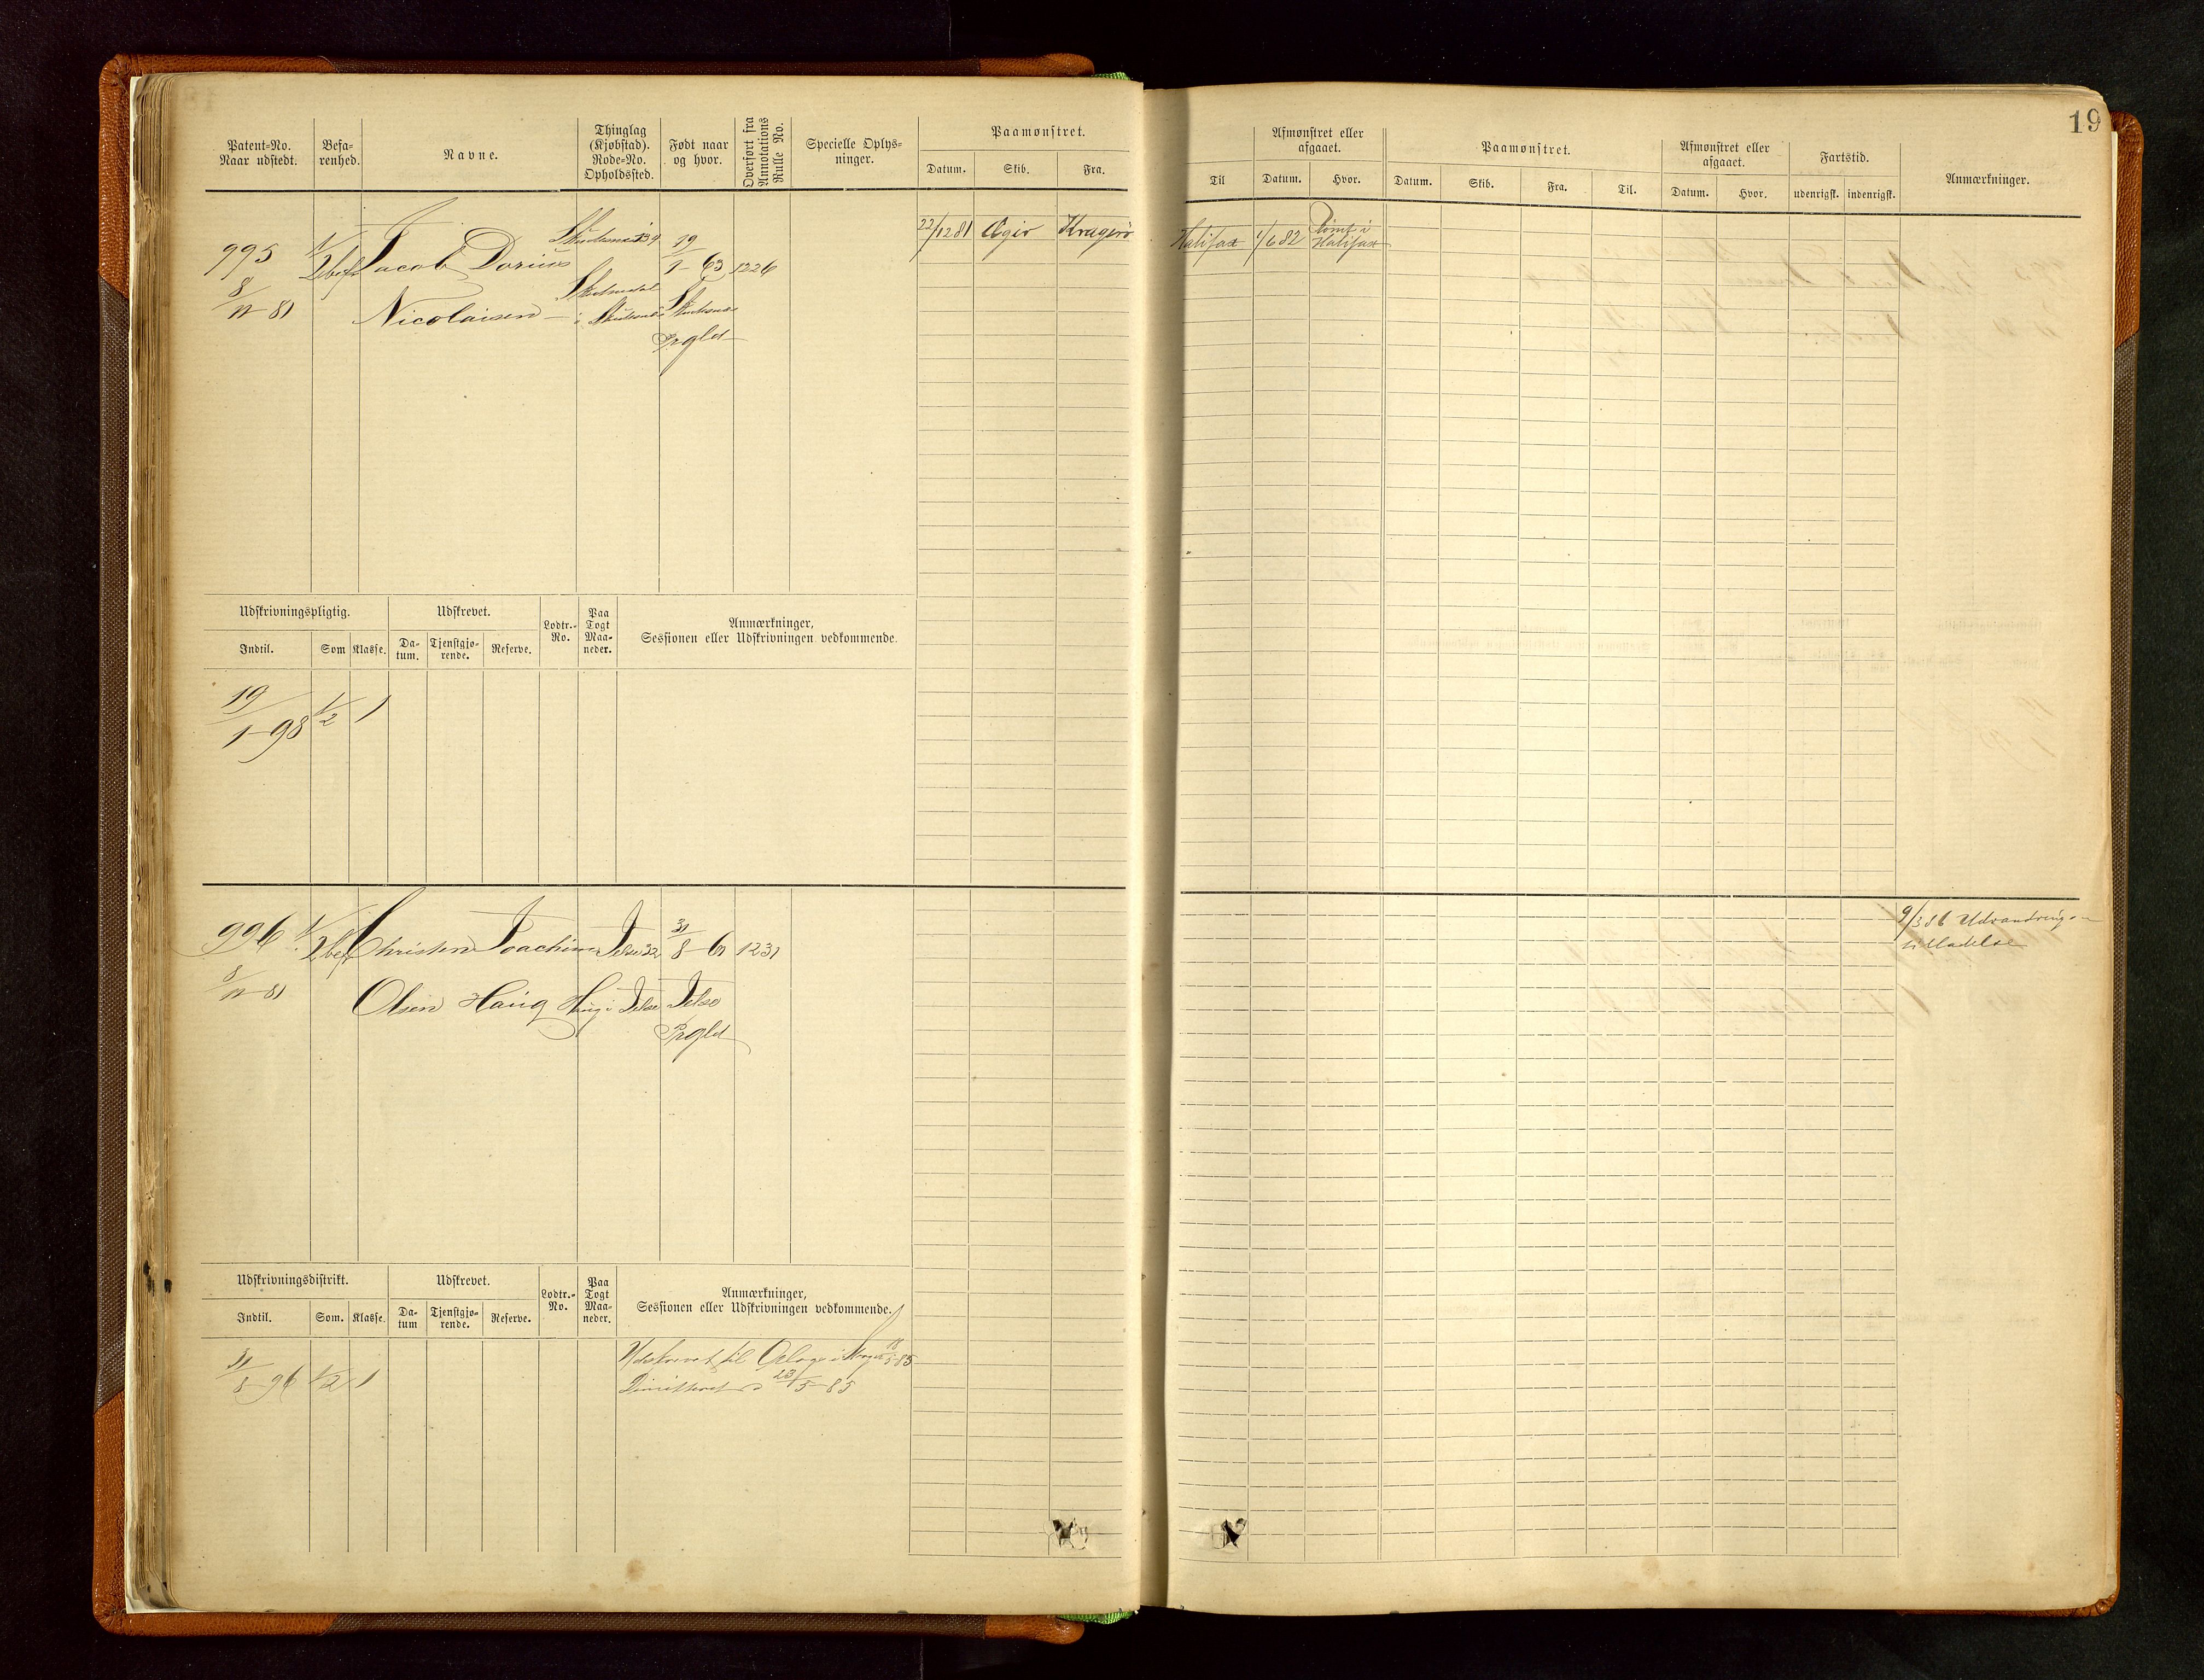 19
Patent=No.
Naar udstedt.
Befa-
renhed.
Navne.
Thinglag
(Kjøbstad).
Rode=No.
Opholdssted.
Født naar
og hvor.
Overført fra
Annotations
Rulle No.
Specielle Oplys-
ninger.
Paamønstret.
Datum. Skib. Fra.
Til
Afmønstret eller
afgaaet.
Datum. Hvor.
Paamønstret.
Datum. Skib. Fra. Til.
Afmønstret eller
afgaaet.
Datum. Hvor.
Fartstid.
udenrigsk. indenrigsk.
Anmærkninger.
995 1/2bef Jacob Dorius 19 1226
8/11 81 Nicolaisen 1 63
Skudenes
i Skudenes
Prgld
22/12 81 Ægir Kragerø Halifax 1/6 82 Rømt i
Halifax
Udskrivningspligtig. Udskrevet. Lodtr.-
No.
Paa
Togt
Maa-
neder.
Anmærkninger,
Sessionen eller Udskrivningen vedkommende.
Indtil. Som Klasse. Da-
tum. Tjenstgjø-
rende. Reserve.
19/1 98 1/2 1
996 1/2bef Christen Joachim Jelse 32 31/8 61 1231
8/11 81 Olsen Haug Haug i Jelse Jelse
Prgld
9/3 86 Udvandrings
tilladelse
Udskrivningsdistrikt. Udskrevet. Lodtr.-
No.
Paa
Togt
Maa-
neder.
Anmærkninger,
Sessionen eller Udskrivningen vedkommende.
Indtil. Som. Klasse. Da-
tum Tjenstgjø-
rende. Reserve.
31/8 96 1/2 1
Udskrevet til 5 85
Dimitteret 23/5 85